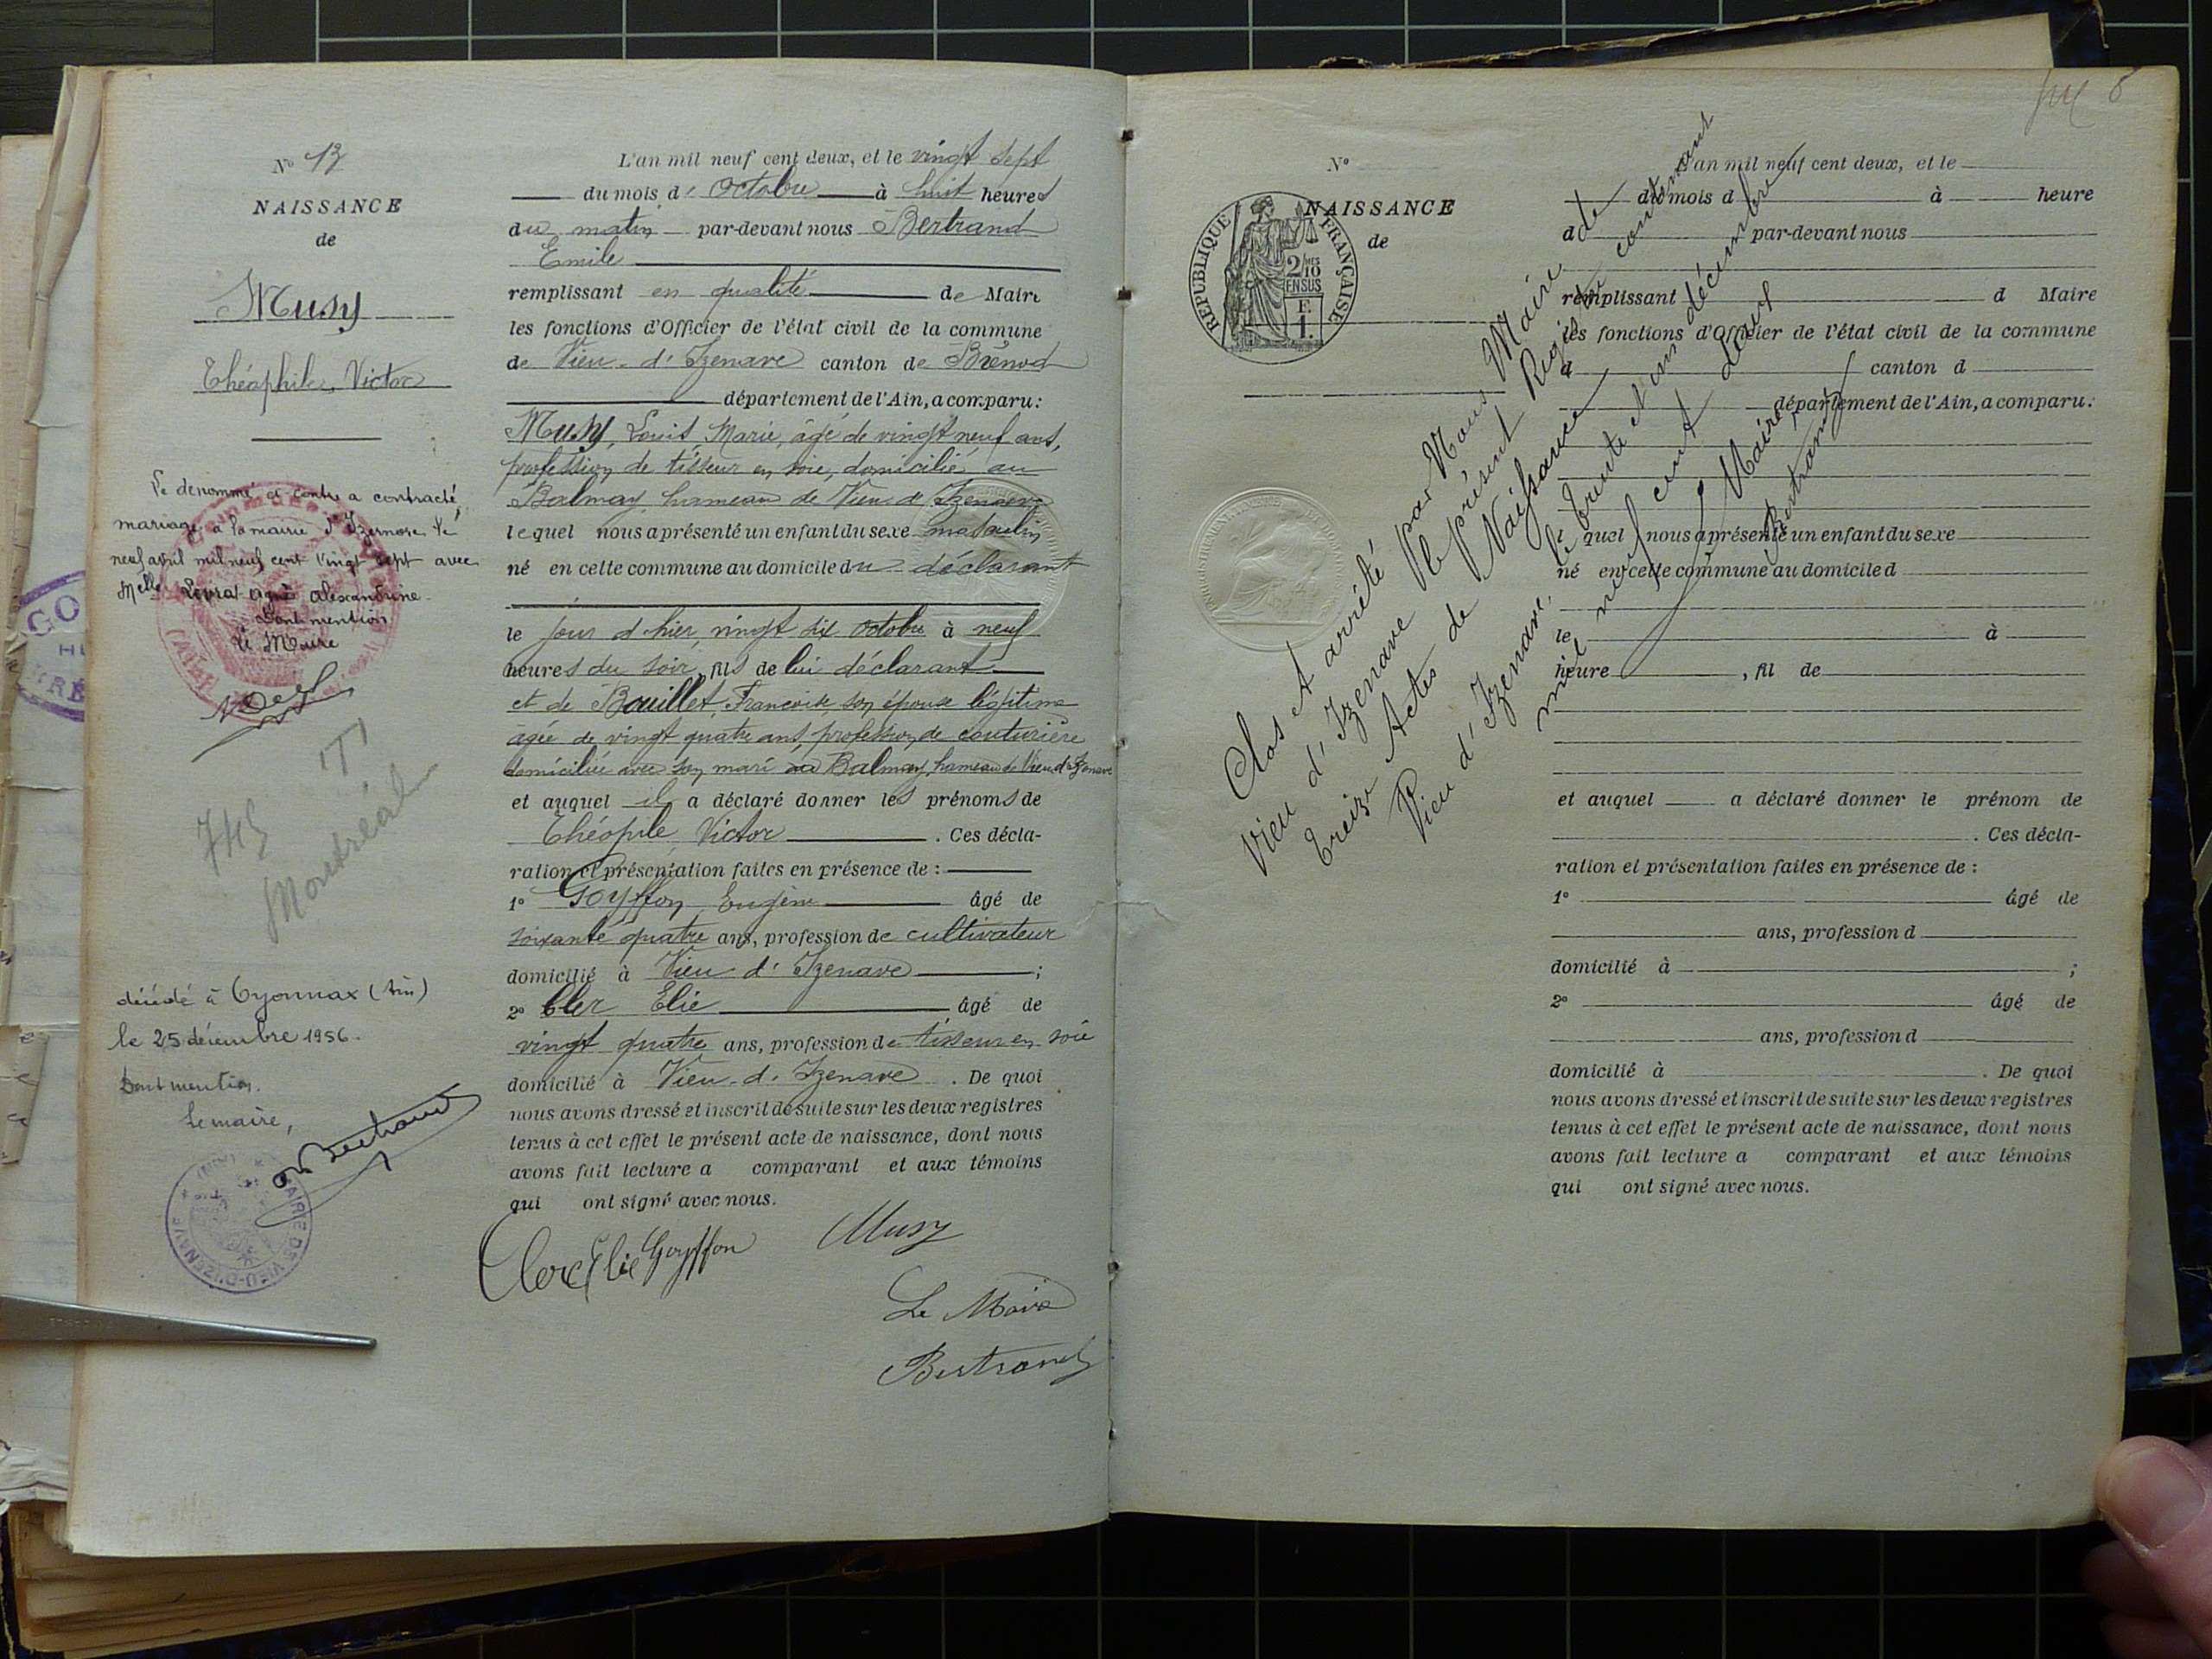 N° 13
NAISSANCE
de
Musy
Théophile, Victor
Le dénommé ci-contre a contracté
mariage à la mairie d'Izernore le
neuf avril mil neuf cent vingt sept avec
Melle Agnès Alexandrine
Dont mention
Le Maire
745
Montréal
décédé à Oyonnax (Ain)
le 25 décembre 1956.
Dont mention.
Le maire,
Bertrand
MAIRIE DE VIEU-D'IZENAVE
L'an mil neuf cent deux, et le vingt sept
du mois d'Octobre à huit heures
du matin par-devant nous Bertrand
Emile
remplissant en qualité de Maire
les fonctions d'Officier de l'état civil de la commune
de Vieu-d'Izenave canton de Brénod
département de l'Ain, a comparu:
Musy, Louis Marie, âgé de vingt neuf ans,
profession de tisseur en soie, domicilié au
Balmay, hameau de Vieu d'Izenave
lequel nous a présenté un enfant du sexe masculin
né en cette commune au domicile du déclarant
le jour d'hier, vingt six octobre à neuf
heures du soir, fils de lui déclarant
et de Bouillet, Françoise, son épouse légitime
âgée de vingt quatre ans, profession de couturière
domiciliée avec son mari au Balmay, hameau de Vieu d'Izenave
et auquel il a déclaré donner les prénoms de
Théophile Victor. Ces décla-
ration et présentation faites en présence de :
1° Goyffon Eugène âgé de
soixante quatre ans, profession de cultivateur
domicilié à Vieu d'Izenave ;
2° Clerc Elie âgé de
vingt quatre ans, profession de tisseur en soie
domicilié à Vieu-d'Izenave. De quoi
nous avons dressé et inscrit de suite sur les deux registres
tenus à cet effet le présent acte de naissance, dont nous
avons fait lecture a comparant et aux témoins
qui ont signé avec nous.
Clerc Elie Goyffon Musy
Le Maire
Bertrand
8
N°
NAISSANCE
de
REPUBLIQUE FRANÇAISE
2/10 MES
EN SUS
F.
1.
L'an mil neuf cent deux, et le
du mois d à heure
d par-devant nous
remplissant d Maire
les fonctions d'Officier de l'état civil de la commune
d canton d
département de l'Ain, a comparu:
l quel nous a présenté un enfant du sexe
né en cette commune au domicile d
le à
heure , fil de
et auquel a déclaré donner le prénom de
. Ces décla-
ration et présentation faites en présence de :
1° âgé de
ans, profession d
domicilié à ;
2° âgé de
ans, profession d
domicilié à . De quoi
nous avons dressé et inscrit de suite sur les deux registres
tenus à cet effet le présent acte de naissance, dont nous
avons fait lecture a comparant et aux témoins
qui ont signé avec nous.
Clos et arrêté par Nous Maire de
Vieu d'Izenave le présent Registre contenant
treize Actes de Naissance
Vieu d'Izenave, le trente et un décembre
mil neuf cent deux
Le Maire,
Bertrand